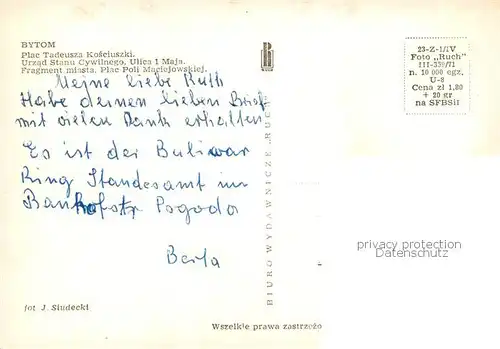 BYTOM
Plac Tadeusza Kościuszki.
Urząd Stanu Cywilnego, Ulica 1 Maja.
Fragment miasta. Plac Poli Maciejowskiej.
Meine liebe Ruth
Habe deinen lieben Brief
mit vielen Dank erhalten
Es ist der Buliwar
Ring Standesamt im
Bahnhofstr Pogoda
Berta
fot J. Siudecki
BIURO WYDAWNICZE „RUCH”
Wszelkie prawa zastrzeżo
23-Z-1/IV
Foto „Ruch”
III-339/71
n. 10 000 egz.
U-8
Cena zł 1,80
+ 20 gr
na SFBSiI
privacy protection
Datenschutz